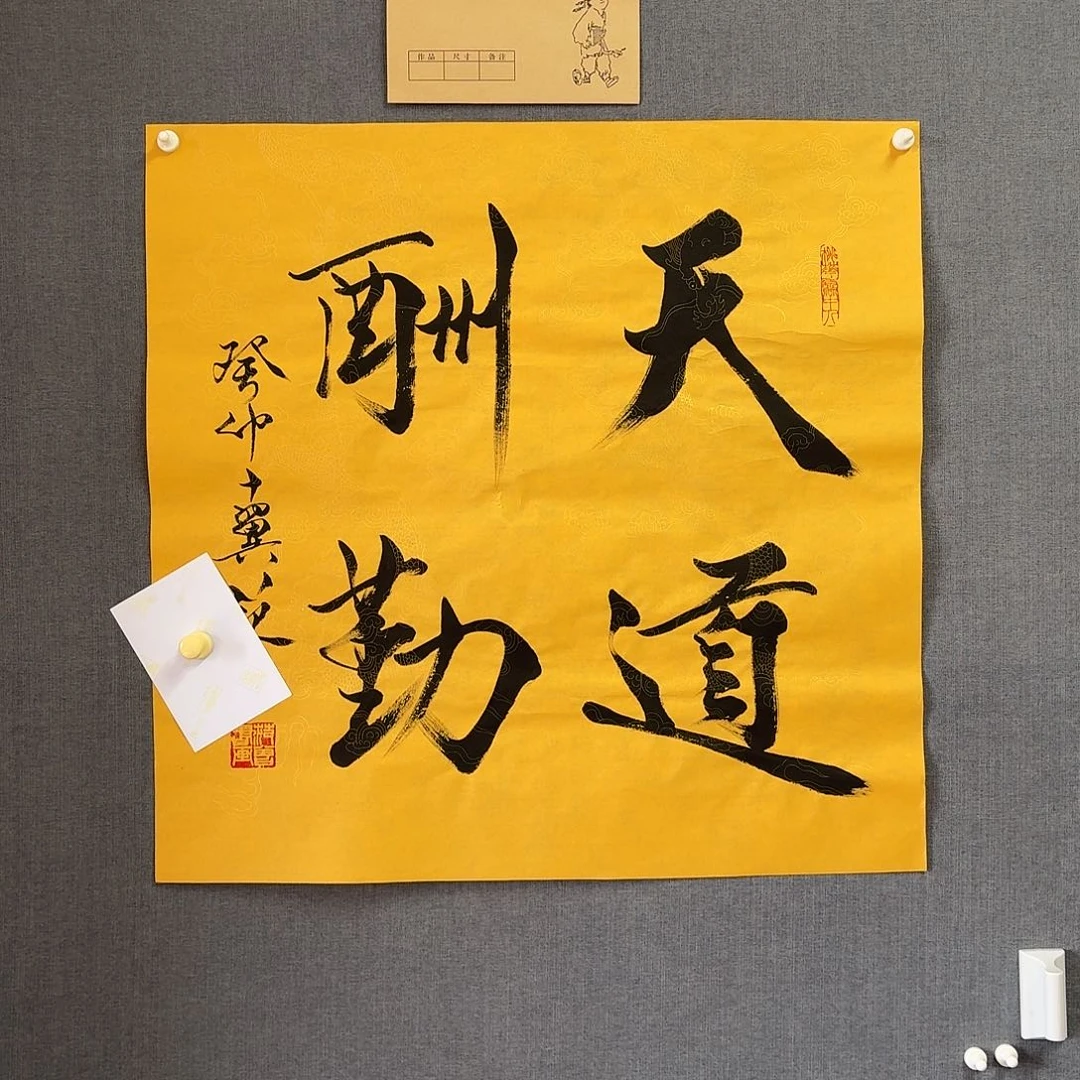 作品 尺寸 备注
天道
酬勤
癸卯十翼